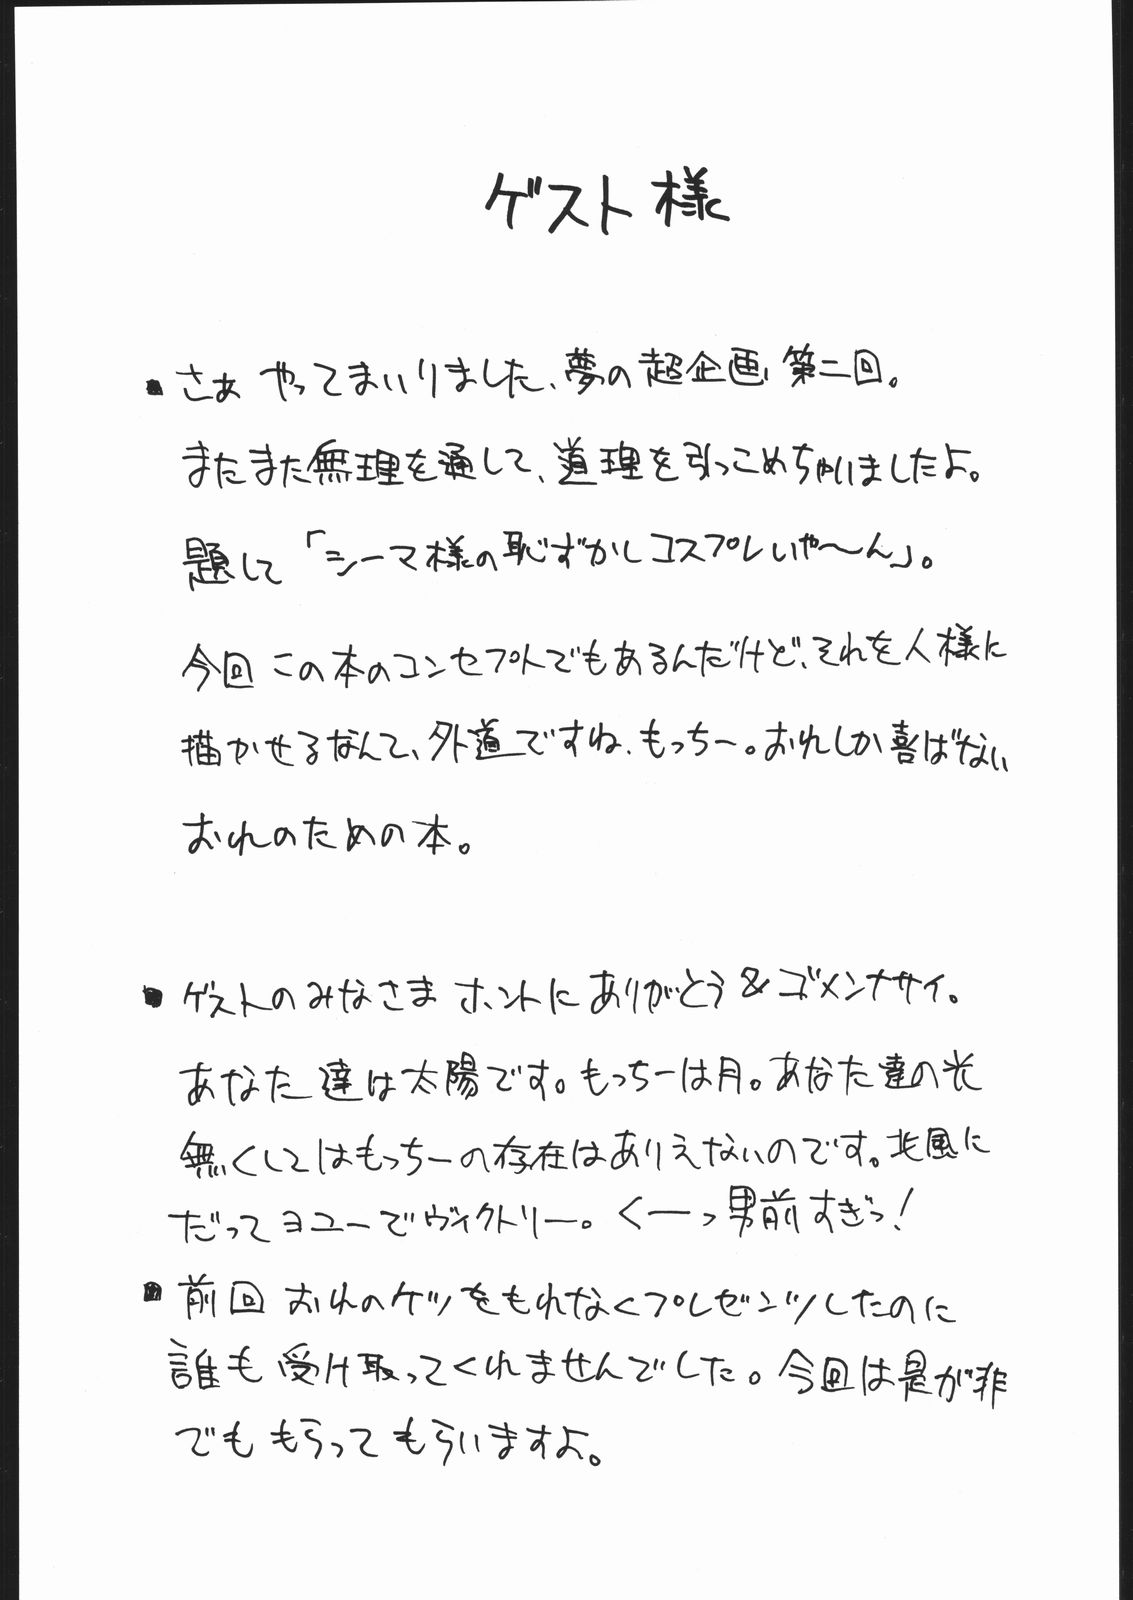 ゲスト様
■さぁ やってまいりました、夢の超企画 第二回。
またまた無理を通して、道理を引っこめちゃいましたよ。
題して「シーマ様の恥ずかしコスプレいや〜ん」。
今回 この本のコンセプトでもあるんだけど、それを人様に
描かせるなんて、外道ですね、もっちー。おれしか喜ばない
おれのための本。
■ゲストのみなさま ホントにありがとう&ゴメンナサイ。
あなた達は太陽です。もっちーは月。あなた達の光
無くしてはもっちーの存在はありえないのです。北風に
だってヨユーでヴィクトリー。くーっ男前すぎっ!
■前回 おれのケツをもれなくプレゼンツしたのに
誰も受け取ってくれませんでした。今回は是が非
でも もらってもらいますよ。